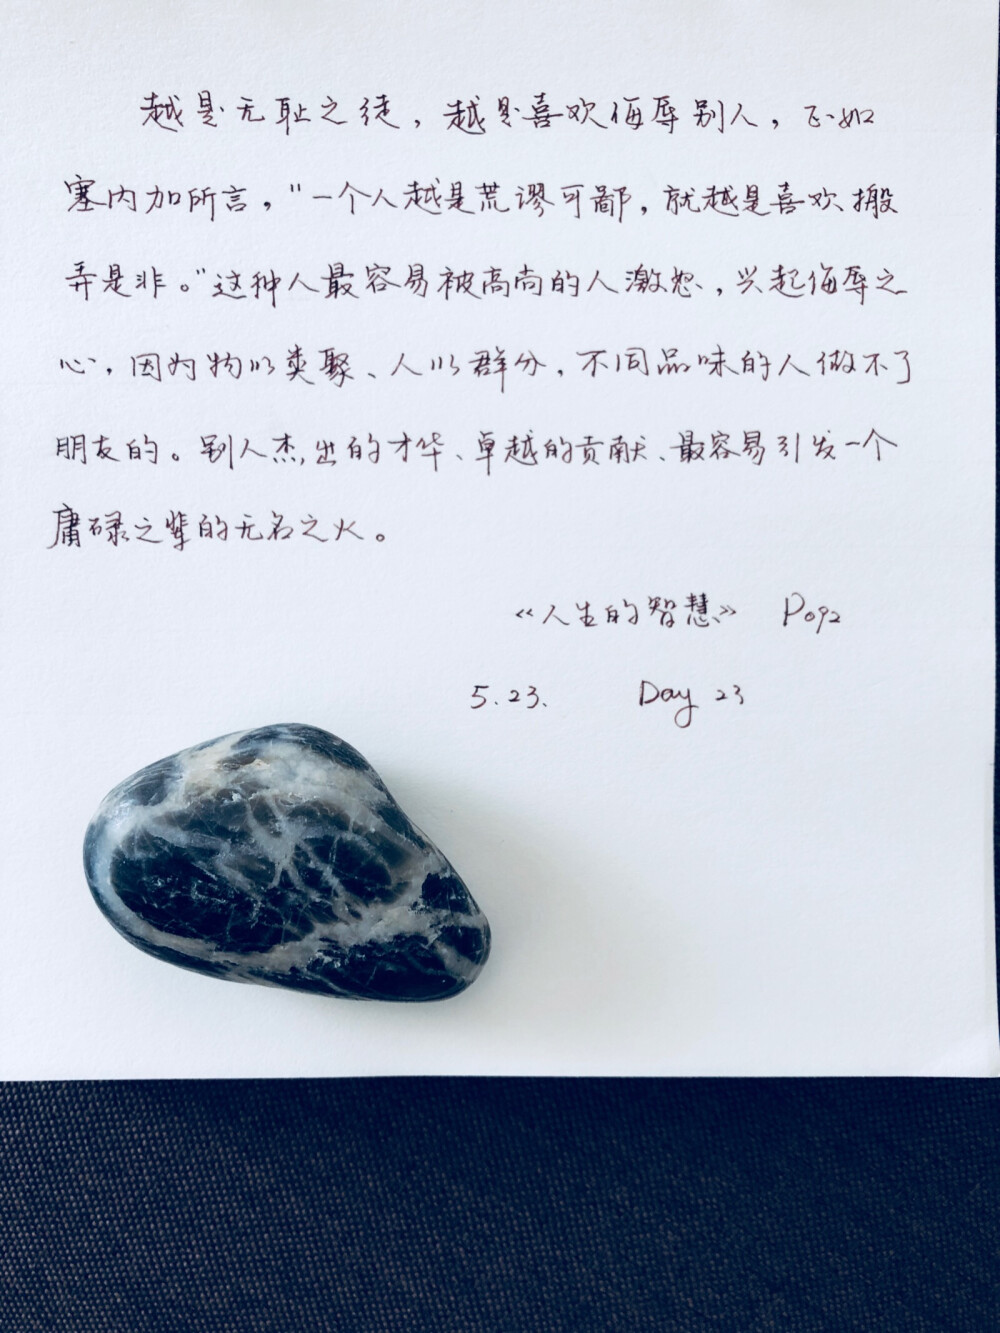 越是无耻之徒，越是喜欢侮辱别人，正如
塞内加所言，"一个人越是荒谬可鄙，就越是喜欢搬
弄是非。"这种人最容易被高尚的人激怒，兴起侮辱之
心，因为物以类聚、人以群分，不同品味的人做不了
朋友的。别人杰出的才华、卓越的贡献、最容易引发一个
庸碌之辈的无名之火。
《人生的智慧》 P092
5.23. Day 23